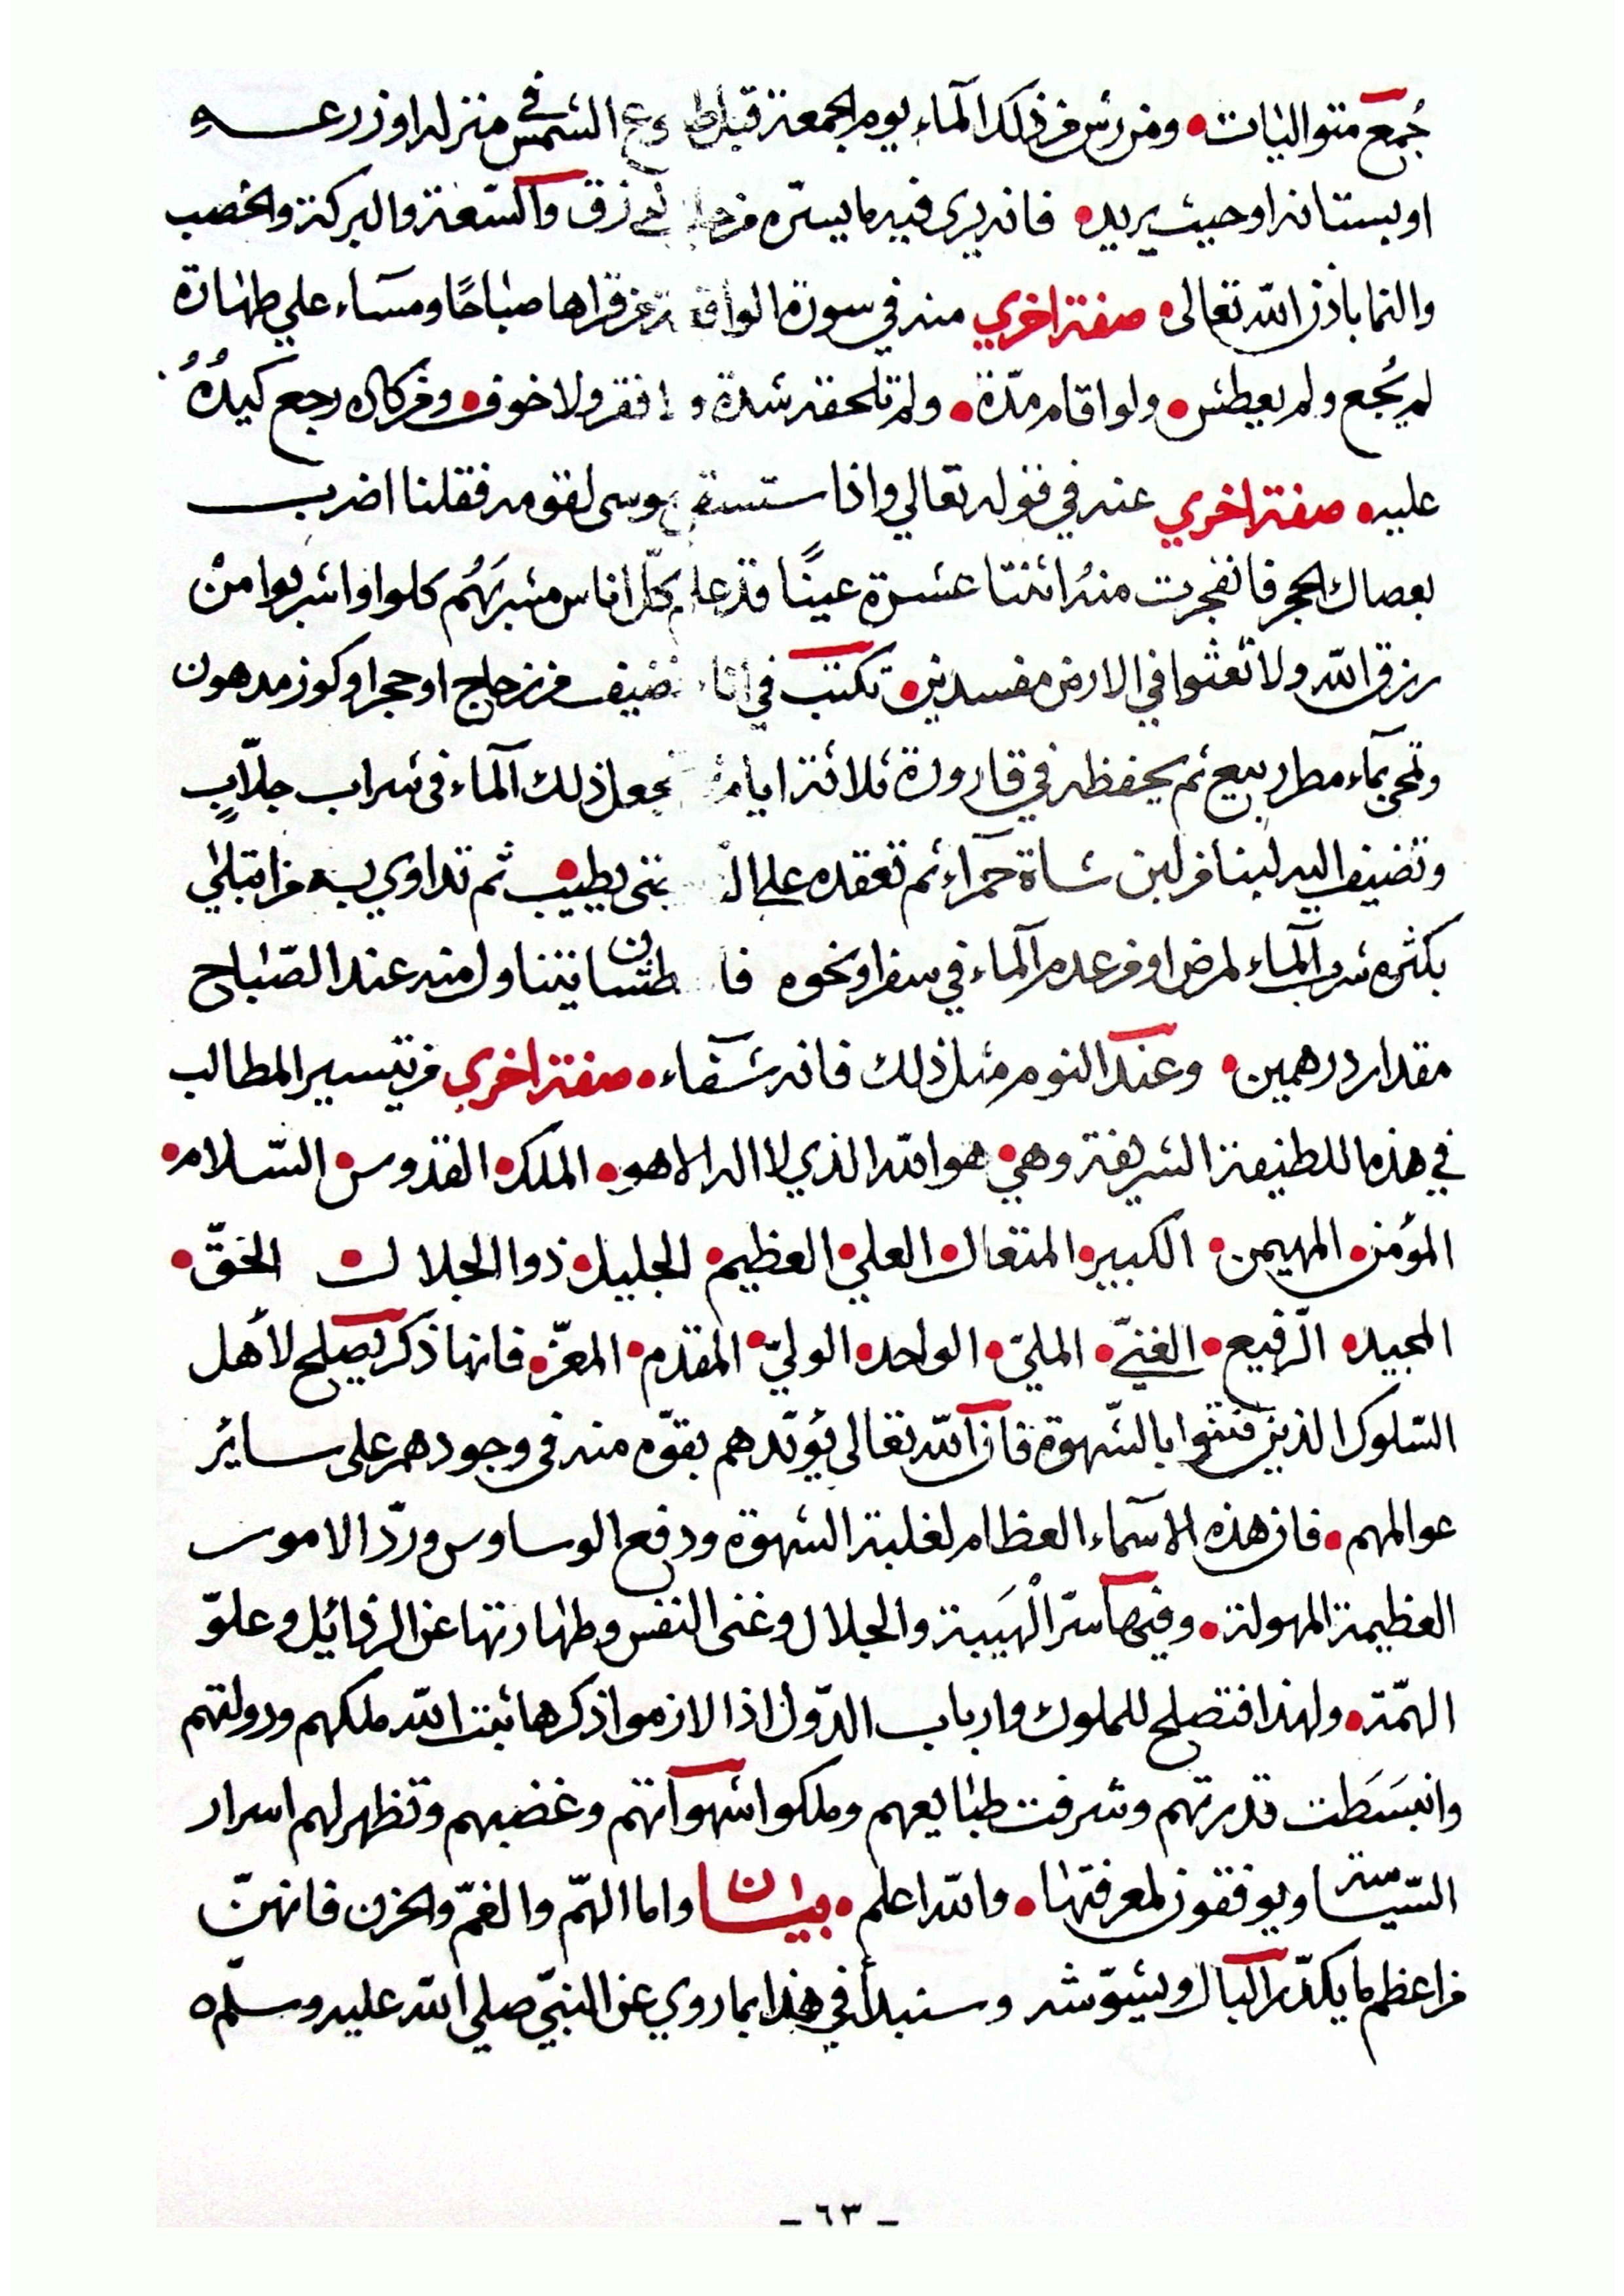 جُمَع متواليات • ومن رش من ذلك الماء يوم الجمعة قبل طلوع الشمس في منزله او زرعه
او بستانه او حيث يريد • فانه يرى فيه ما يسرّه من الرزق والسّعة والبركة والخصب
والنما باذن الله تعالى • صفة اخري منه في سورة الواقعة من قراها صباحًا ومسآء علي طهارة
لم يُجع ولم يعطش • ولو اقام مدّة • ولم تلحقه شدة ولا فقر ولا خوف • ومن كاده رجع كيدُهُ
عليه • صفة اخري عنه في قوله تعالي واذا ستسقى موسى لقومه فقلنا اضرب
بعصاك الحجر فانفجرت منهُ اثنتا عشرة عينًا قد علم كلّ اناس مشربَهُم كلوا واشربوا منْ
رزق الله ولا تعثوا في الارض مفسدين • تكتب في اناء نضيف من زجاج او حجر او كوز مدهون
وتمحي بمآء مطر ربيع ثم يحفظه في قارورة ثلاثة ايام ثم يجعل ذلك الماء في شراب جلّابٍ
وتضيف اليه لبنا من لبن شاة حمرآء ثم تعقده علي حتى يطيب • ثم تداوي به من ابتلي
بكثره شرب المآء لمرض او من عدم المآء في سفر او نحوه فا طشان يتناول منه عند الصّباح
مقدار درهمين • وعند النوم مثل ذلك فانه شفآء • صفة اخري من تيسير المطالب
في هذه اللطيفة الشريفة وهي • هو الله الذي لا اله الا هو • الملك • القدوس • السّلام •
المؤمن • المهيمن • الكبير • المتعال • العلي • العظيم • الجليل • ذوا الجلال • الحقّ •
المجيد • الرّفيع • الغنيّ • المليّ • الواحد • الوليّ • المقدم • المعزّ • فانها ذكر يصلح لأهل
السّلوك الذين فتنوا بالشّهوة فان الله تعالى يُؤيّدهم بقوّه منه فى وجودهم على سائر
عوالمهم • فان هذه الاسمآء العظام لغلبة الشهوة ودفع الوساوس وردّ الامور
العظيمة المهولة • وفيها سرّ الْهَيبة والجلال وغنى النفس وطهارتها عن الرذائل وعلوّ
الهمّة • ولهذا فتصلح للملوك وارباب الدّول اذا لازموا ذكرها ثبت الله ملكهم ودولتهم
وانبسَطت قدرتهم وشرفت طبايعهم وملكوا شهواتهم وغضبهم وتظهر لهم اسرار
السّياسة ويوفقون لمعرفتها • والله اعلم • بيان واما الهمّ والغمّ والحزن فانهنّ
من اعظم ما يكدّر البال ويشوّشه وسنبدأ في هذا بما روي عن النبيّ صلي الله عليه وسلّم ه
- ٦٣ -